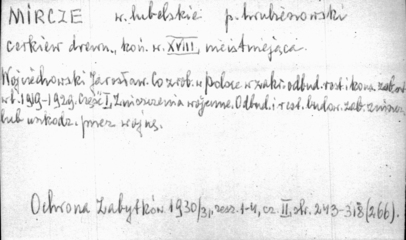 MIRCZE w. lubelskie p. hrubieszowski
cerkiew drewn., koń. w. XVIII, nieistniejąca.
Wojciechowski Jarosław. Co zrob. w Polsce w zakr. odbud. rest. i kons. zabyt.
w l. 1919-1929. Część I, Zniszczenia wojenne. Odbud. i rest. budow. zab. zniszcz.
lub uszkodz. przez wojnę.
Ochrona Zabytków. 1930/31, zesz. 1-4, cz. II, str. 243-318 (266).